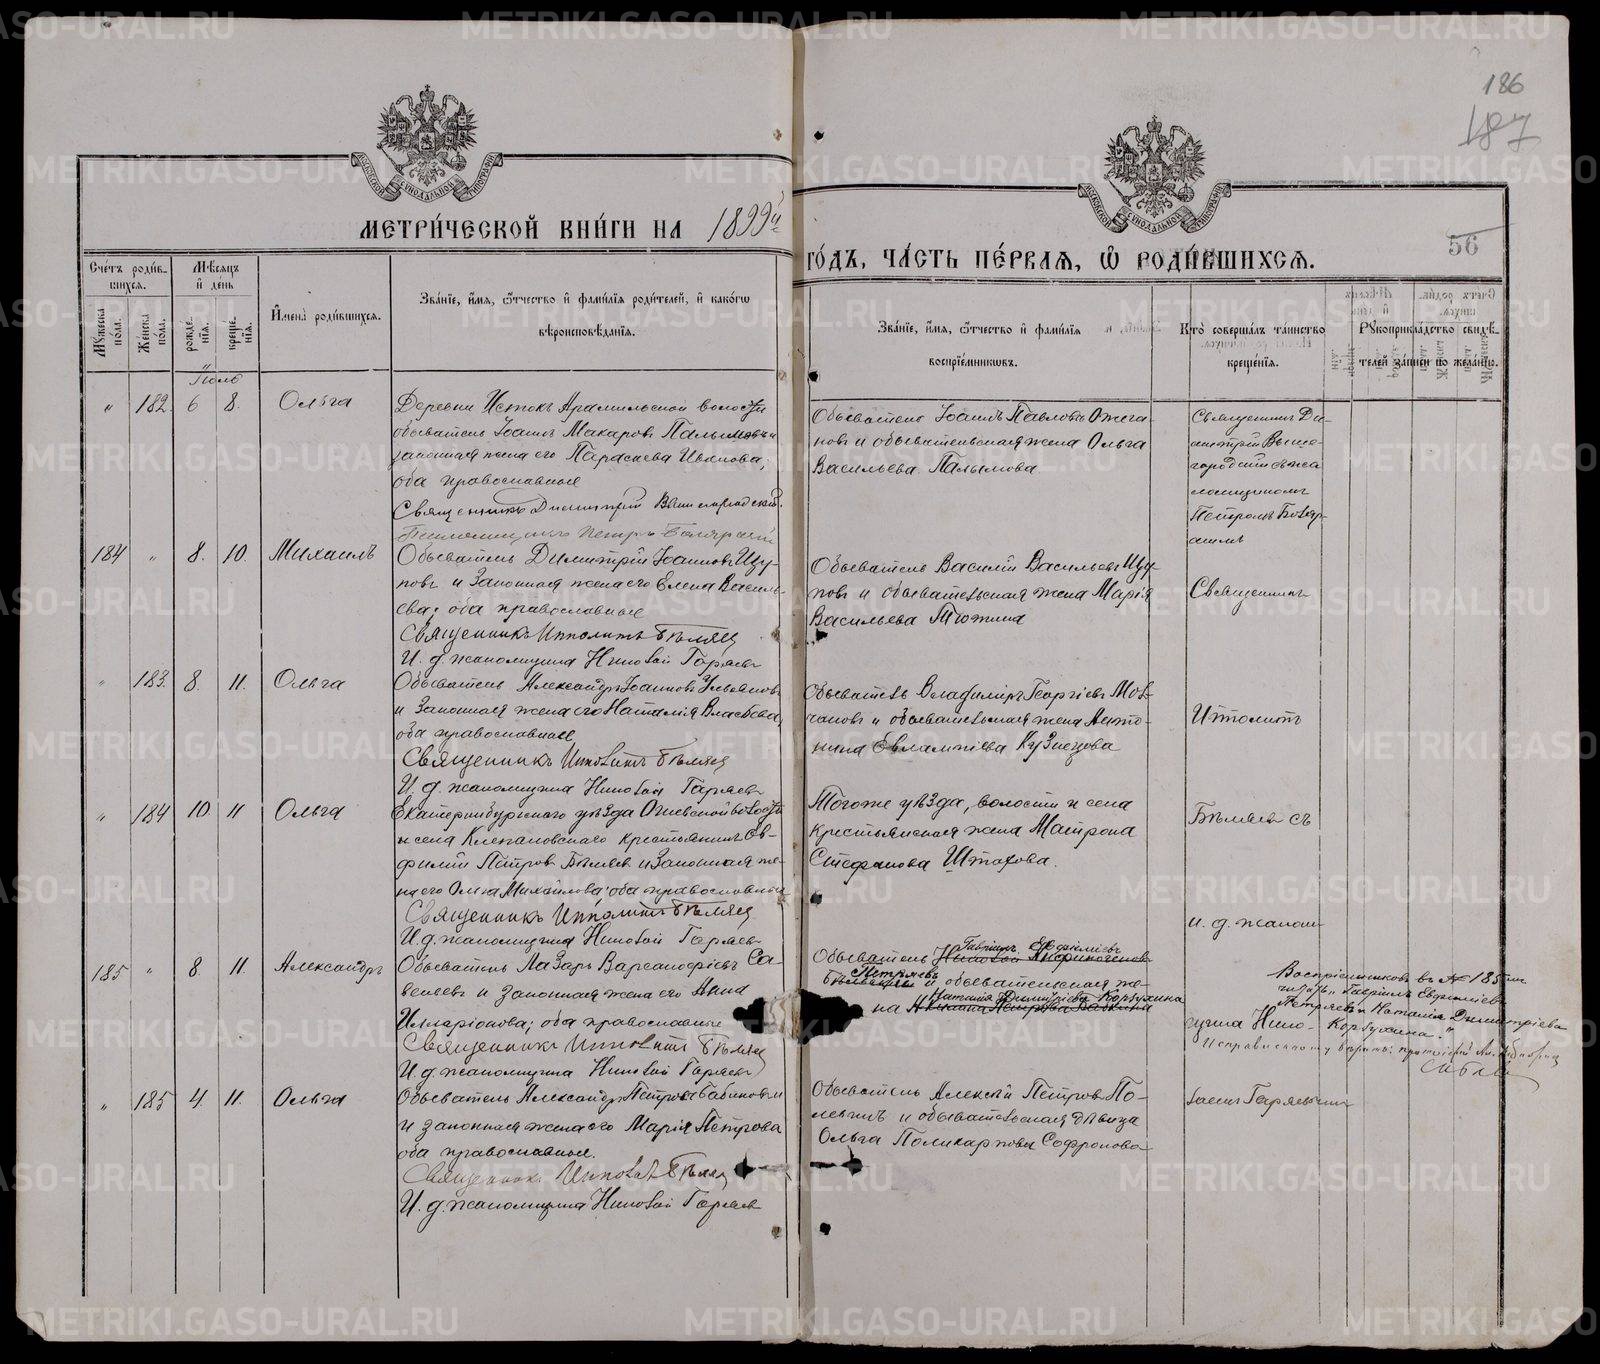 186
187
МЕТРИ́ЧЕСКОЙ КНИ́ГИ НА 1899й
ГО́ДЪ, ЧА́СТЬ ПЕ́РВАѦ, Ѡ҆ РОДИ́ВШИХСѦ.
56
Сче́тъ роди́в-
шихсѧ.
Мѣ́сѧцъ
и҆ де́нь
Мꙋ́жеска по́ла.
Же́нска по́ла.
рожде́-
нїѧ.
креще́-
нїѧ.
И҆мена̀ роди́вшихсѧ.
Зва́нїе, и҆́мѧ, ѻ҆́тчество и҆ фами́лїѧ роди́телей, и҆ како́гѡ
вѣроисповѣ́данїѧ.
Зва́нїе, и҆́мѧ, ѻ҆́тчество и҆ фами́лїѧ
воспрїе́мниковъ.
Кто̀ соверша́лъ та́инство
креще́нїѧ.
Рꙋкоприкла́дство свидѣ́-
телей за́писи по жела́нїю.
" 182. 6 8. Ольга
Деревни Истокъ Арамильской волости
обыватель Іоаннъ Макаровъ Палымовъ и
законная жена его Параскева Иванова;
оба православные
Священникъ Димитрій Вышегородскій.
Псаломщикъ Петръ
Обыватель Іоаннъ Павловъ Ожега-
новъ и обывательская жена Ольга
Васильева Палымова
Священникъ Ди-
митрій Выше-
городскій съ пса
ломщикомъ
Петромъ
184 " 8. 10. Михаилъ
Обыватель Димитрій Іоанновъ Щу-
повъ и законная жена его Елена Василь-
ева; оба православные
Священникъ Ипполитъ Бѣляевъ
И. д. псаломщика Николай Гаряевъ
Обыватель Василій Васильевъ Щу-
повъ и обывательская жена Марія
Васильева Тютина
Священникъ
" 183. 8. 11. Ольга
Обыватель Александръ Іоанновъ Ульяновъ
и законная жена его Наталія Власьева,
оба православные
Священникъ Ипполитъ Бѣляевъ
И. д. псаломщика Николай Гаряевъ
Обыватель Владиміръ Георгіевъ Мол-
чановъ и обывательская жена Анто-
нина Евлампіева Кузнецова
Ипполитъ
" 184 10. 11 Ольга
Екатеринбургскаго уѣзда Огневской волости
и села Клепаловскаго крестьянинъ Ев-
фимій Петровъ Бѣляевъ и законная же-
на его Ольга Михайлова; оба православные
Священникъ Ипполитъ Бѣляевъ
И. д. псаломщика Николай Гаряевъ
Тогоже уѣзда, волости и села
крестьянская жена Матрона
Стефанова Шпахова.
Бѣляевъ съ
и. д. псалом-
185 " 8. 11. Александръ
Обыватель Лазарь Варсанофіевъ Са-
вельевъ и законная жена его Анна
Илларіонова; оба православные
Священникъ Ипполитъ Бѣляевъ
И. д. псаломщика Николай Гаряевъ
Гавріилъ Евфиміевъ
Обыватель Николай
Петряевъ
и обывательская же-
Наталія Димитріева Корзухина
на
щика Нико-
Воспріемниковъ въ № 185мъ
читать „Гавріилъ Евфиміевъ
Петряевъ и Наталія Димитріева
Корзухина."
Исправленному вѣрить: протоіерей
" 185 4. 11. Ольга
Обыватель Александръ Петровъ Бабиновъ и
и законная жена его Марія Петрова
оба православные.
Священникъ Ипполитъ Бѣляевъ
И. д. псаломщика Николай Гаряевъ
Обыватель Алексѣй Петровъ По-
и обывательская дѣвица
Ольга Поликарпова Софронова
лаемъ Гаряевымъ
METRIKI.GASO-URAL.RU